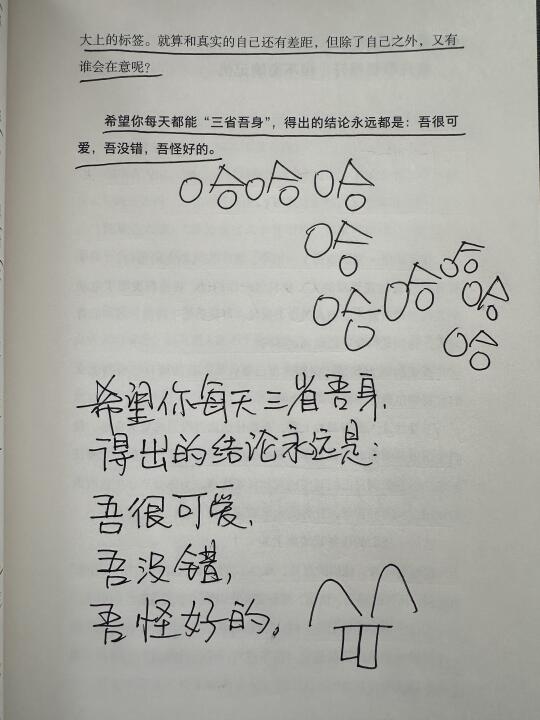 大上的标签。就算和真实的自己还有差距，但除了自己之外，又有
谁会在意呢？
希望你每天都能“三省吾身”，得出的结论永远都是：吾很可
爱，吾没错，吾怪好的。
希望你每天三省吾身，
得出的结论永远是：
吾很可爱，
吾没错，
吾怪好的。